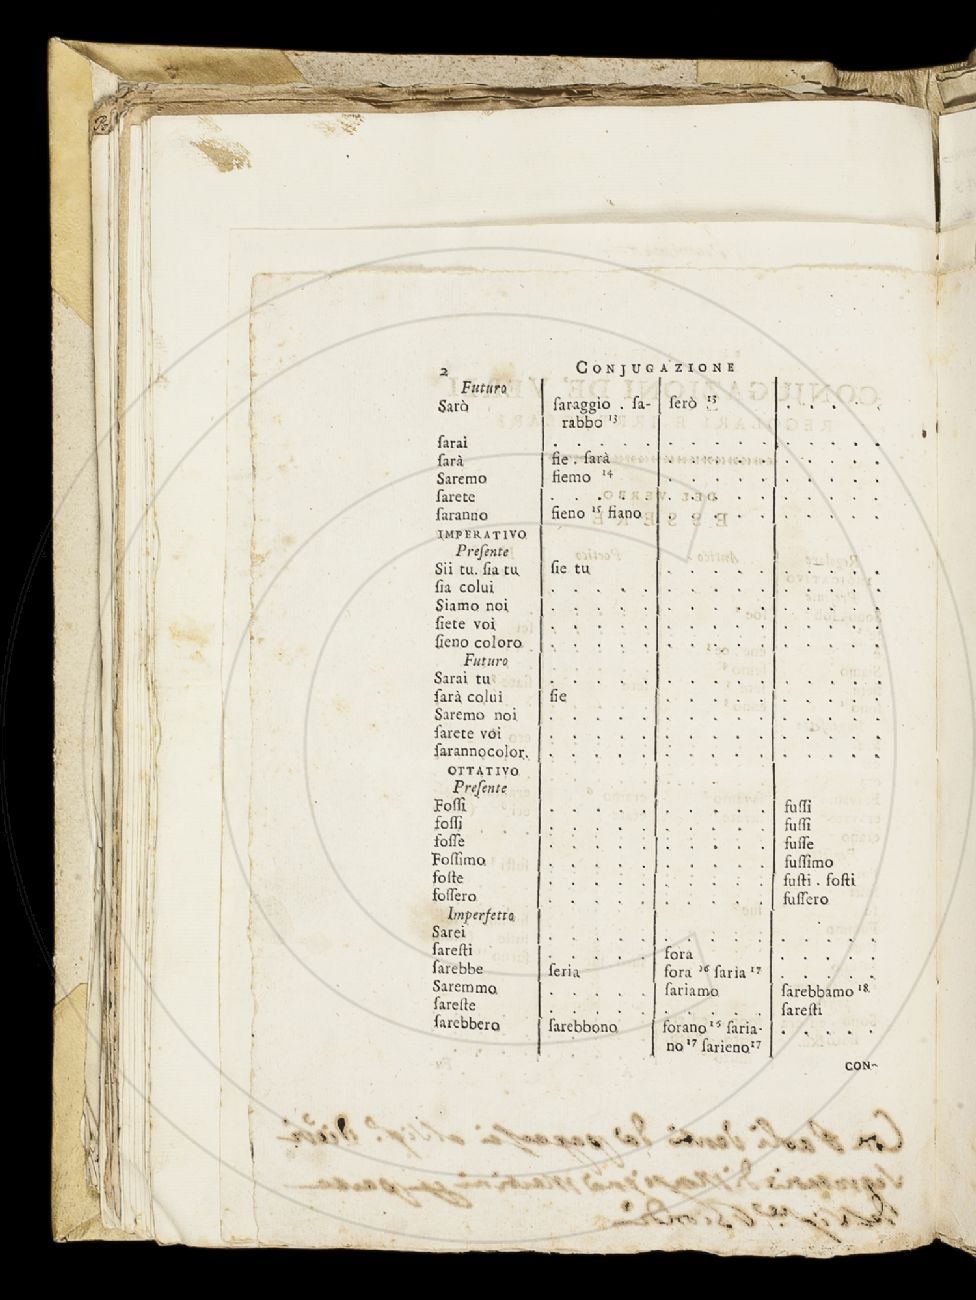 2 CONJUGAZIONE
Futuro
Sarò ſaraggio . ſa- ſerò 15 . . . . .
rabbo 13
ſarai . . . . . . . . . . . . . . .
ſarà ſie . ſarà . . . . . . . . . .
Saremo ſiemo 14 . . . . . . . . . .
ſarete . . . . . . . . . . . . . . .
ſaranno ſieno 15 ſiano . . . . . . . . . .
IMPERATIVO
Preſente
Sii tu. ſia tu ſie tu . . . . . . . . . .
ſia colui . . . . . . . . . . . . . . .
Siamo noi . . . . . . . . . . . . . . .
ſiete voi . . . . . . . . . . . . . . .
ſieno coloro . . . . . . . . . . . . . . .
Futuro
Sarai tu . . . . . . . . . . . . . . .
ſarà colui ſie . . . . . . . . . .
Saremo noi . . . . . . . . . . . . . . .
ſarete voi . . . . . . . . . . . . . . .
ſarannocolor. . . . . . . . . . . . . . . .
OTTATIVO
Preſente
Foſſi . . . . . . . . . . fuſſi
foſſi . . . . . . . . . . fuſſi
foſſe . . . . . . . . . . fuſſe
Foſſimo . . . . . . . . . . fuſſimo
foſte . . . . . . . . . . fuſti . foſti
foſſero . . . . . . . . . . fuſſero
Imperfetto
Sarei . . . . . . . . . . . . . . .
ſareſti . . . . . fora . . . . .
ſarebbe ſeria fora 16 ſaria 17 . . . . .
Saremmo . . . . . ſariamo ſarebbamo 18
ſareſte . . . . . . . . . . ſareſti
ſarebbero ſarebbono forano 16 ſaria- . . . . .
no 17 ſarieno 17
CON-